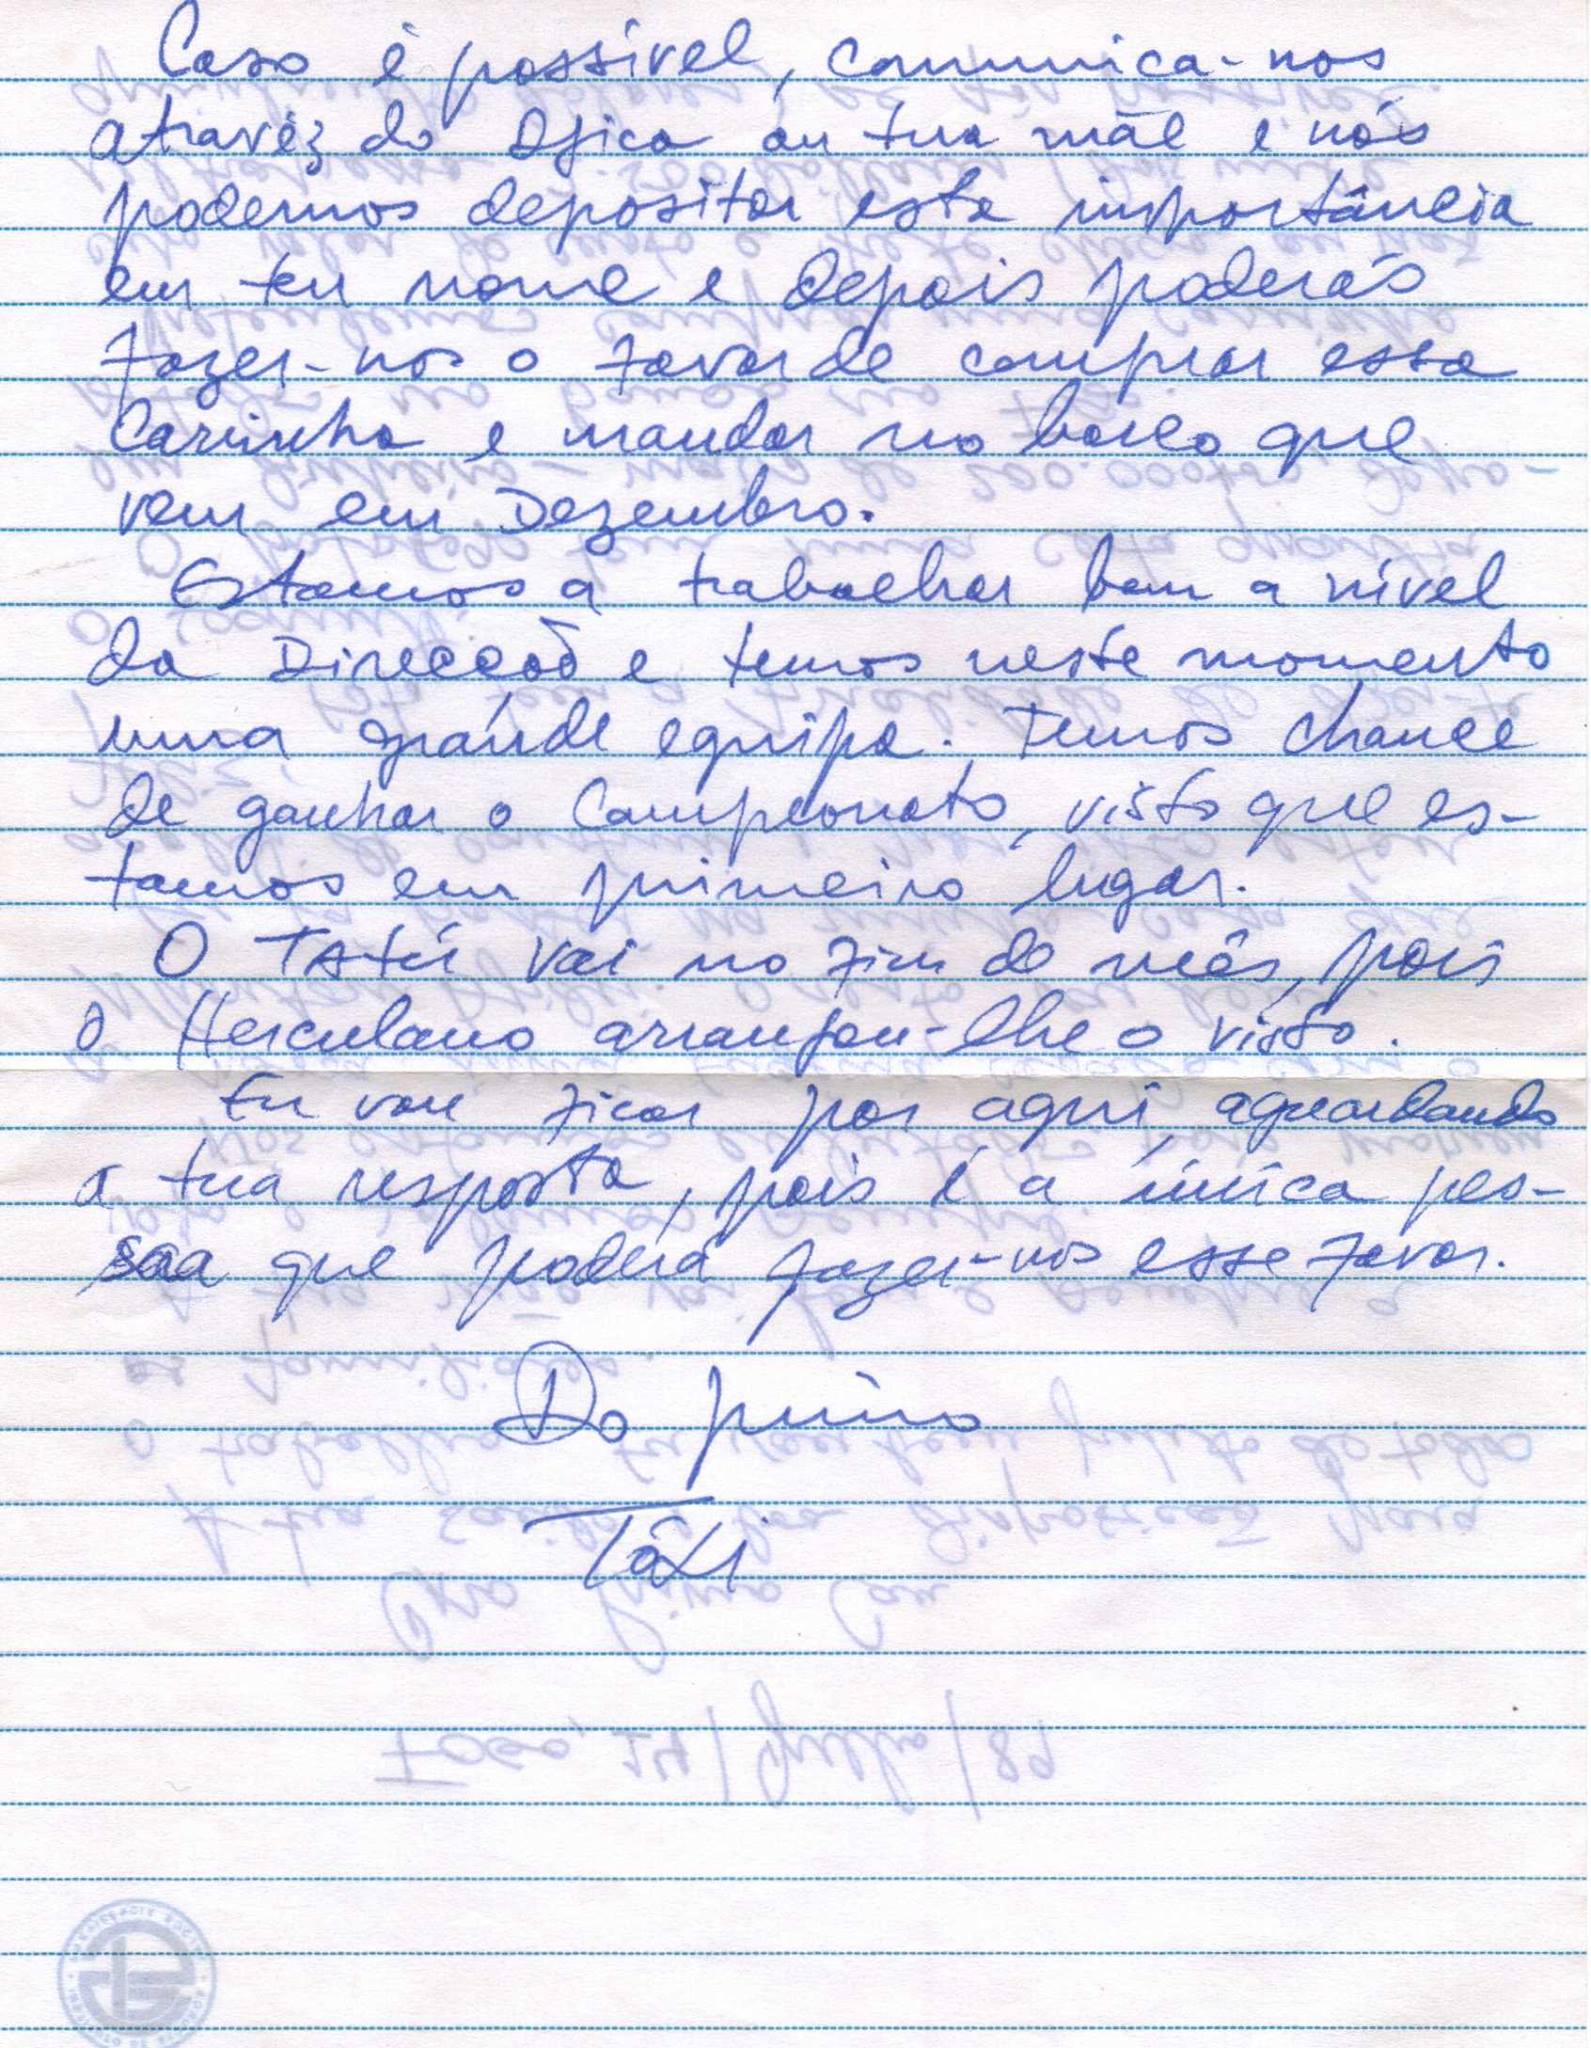 Caso é possível, comunica-nos
atravéz do Djica ou tua mãe e nós
podemos depositar esta importância
em teu nome e depois poderás
fazer-nos o favor de comprar essa
Carrinha e mandar no barco que
vem em Dezembro.
Estamos a trabalhar bem a nível
da Direcçaõ e temos neste momento
uma grande equipa. Temos chance
de ganhar o Campeonato, visto que es-
tamos em primeiro lugar.
O TATÚ vai no fim de mês, pois
o Herculano arranjou-lhe o visto.
Eu vou ficar por aqui, aguardando
a tua resposta, pois é a única pes-
soa que poderá fazer-nos esse favor.
Do primo